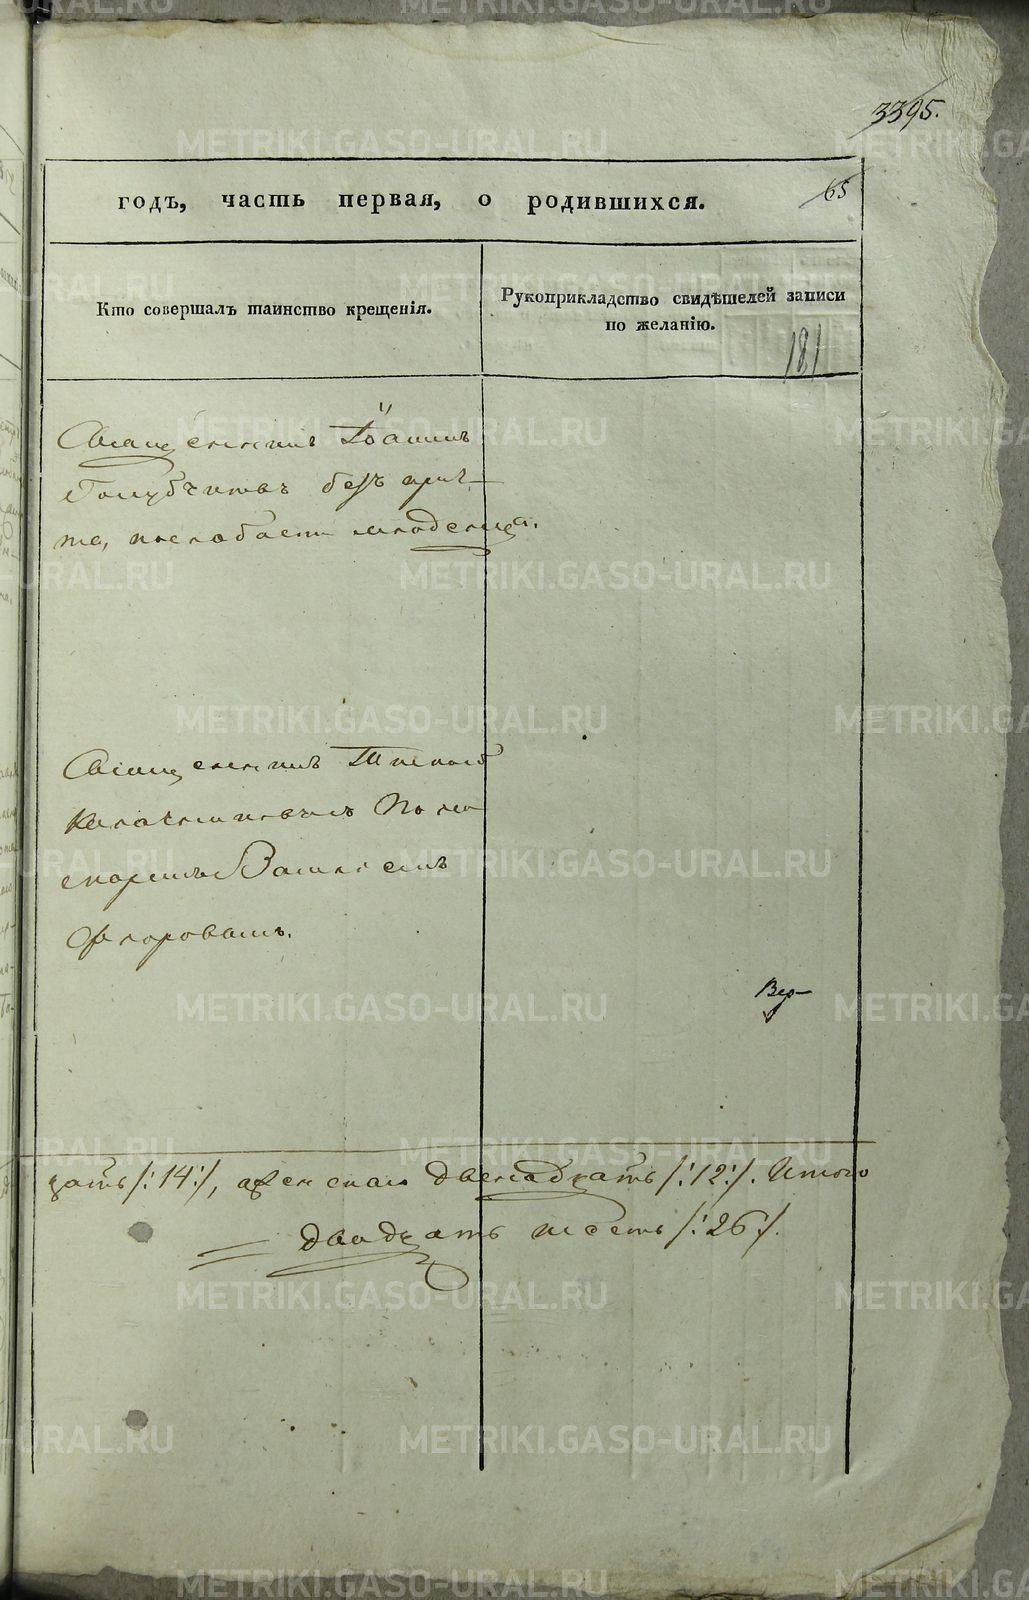 3395.
годъ, часть первая, о родившихся.
65
Кто совершалъ таинство крещенія.
Рукоприкладство свидѣтелей записи
по желанію.
181
Священникъ Іоаннъ
Голубчиковъ безъ прич-
та, по слабости младенца.
Священникъ
съ По но
маремъ Василіемъ
Флоровымъ.
Вер-
цать /:14:/, женска двенадцать /:12:/. Итого
двадцать шесть /:26:/.
METRIKI.GASO-URAL.RU